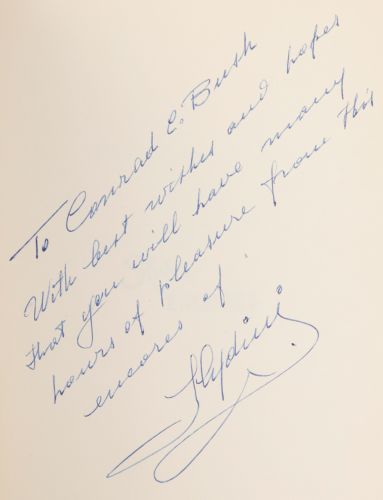 To Conrad C. Bush
With best wishes and hopes
that you will have many
hours of pleasure from this
encores of.
Slydini.